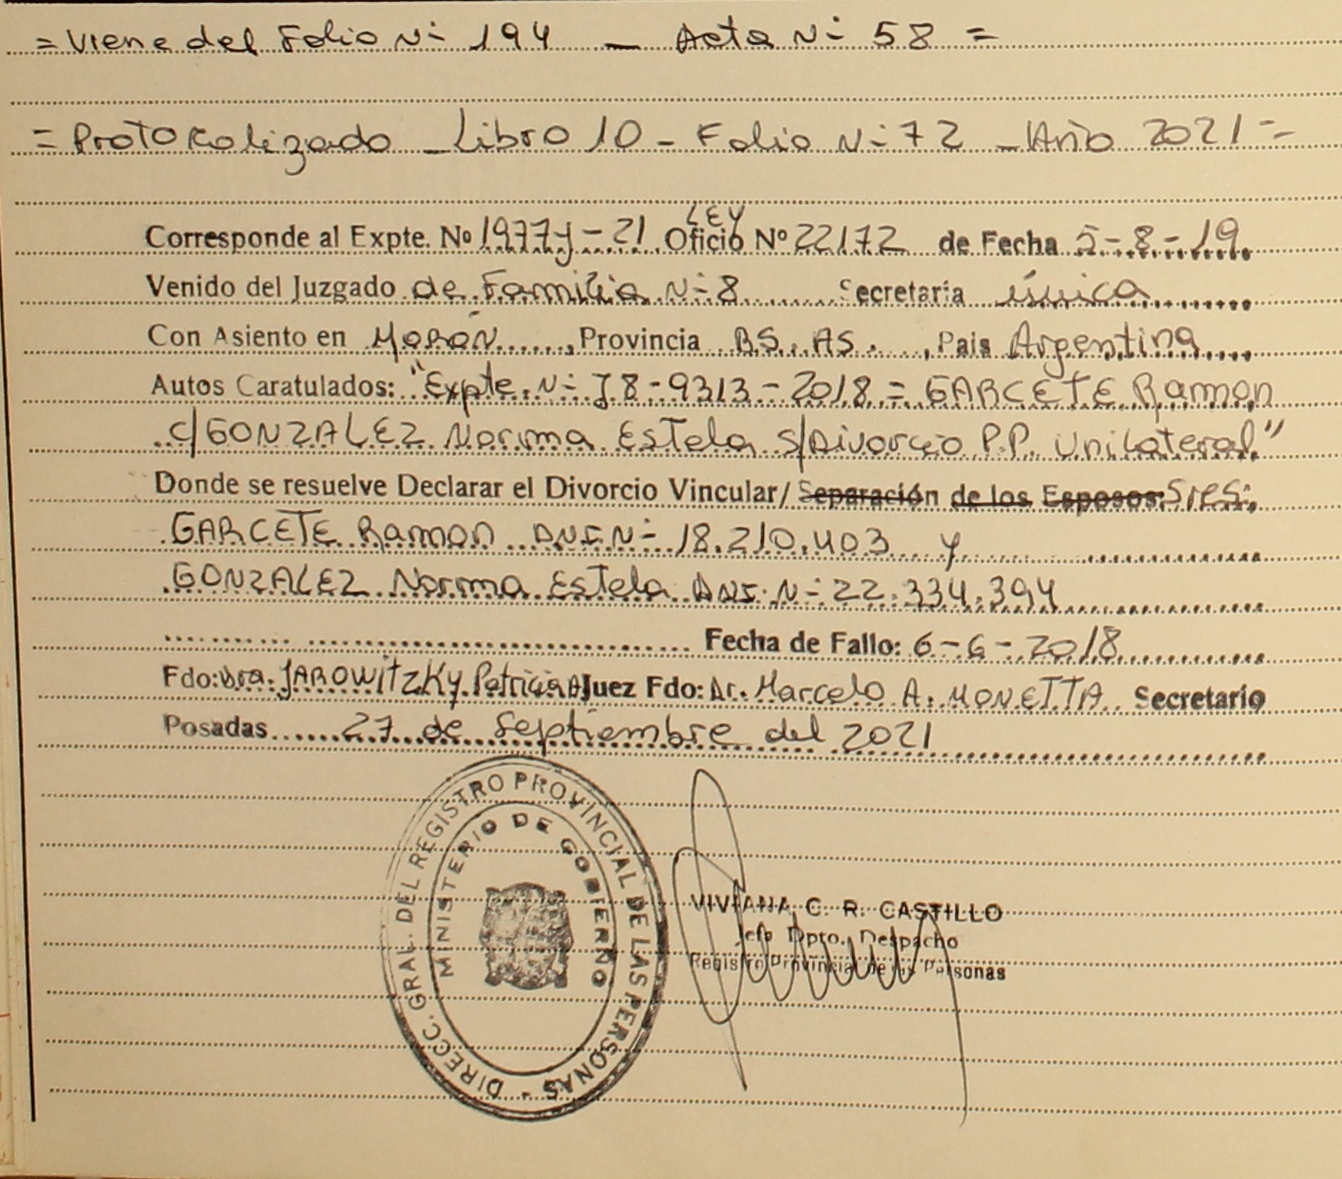 = Viene del Folio N- 194 _ Acta N- 58 =
= Protokolizado _ Libro 10 - Folio N- 72 _ Año 2021 =
LEY
Corresponde al Expte. Nº 1977-J-21 Oficio Nº 22172 de Fecha 5-8-19.
Venido del Juzgado de Familia N-8 Secretaria única
Con Asiento en MORÓN, Provincia BS. AS., Pais Argentina
Autos Caratulados: "Expte. N- J8-9313-2018 = GARCETE Ramon
c/GONZALEZ Norma Estela S/Divorcio P.P. Unilateral."
Donde se resuelve Declarar el Divorcio Vincular/ Separación de los Esposos: Sres.
GARCETE Ramon DNI N- 18.210.403 y
GONZALEZ Norma Estela DNI. N- 22.334.394
Fecha de Fallo: 6-6-2018
Fdo: Dra. JAROWITZKY Patricia A Juez Fdo: Dr. Marcelo A. MONETTA Secretario
Posadas 27 de Septiembre del 2021
DIRECC. GRAL. DEL REGISTRO PROVINCIAL DE LAS PERSONAS -
MINISTERIO DE GOBIERNO
VIVIANA C. R. CASTILLO
Jefa Dpto. Despacho
Registro Provincial de las Personas